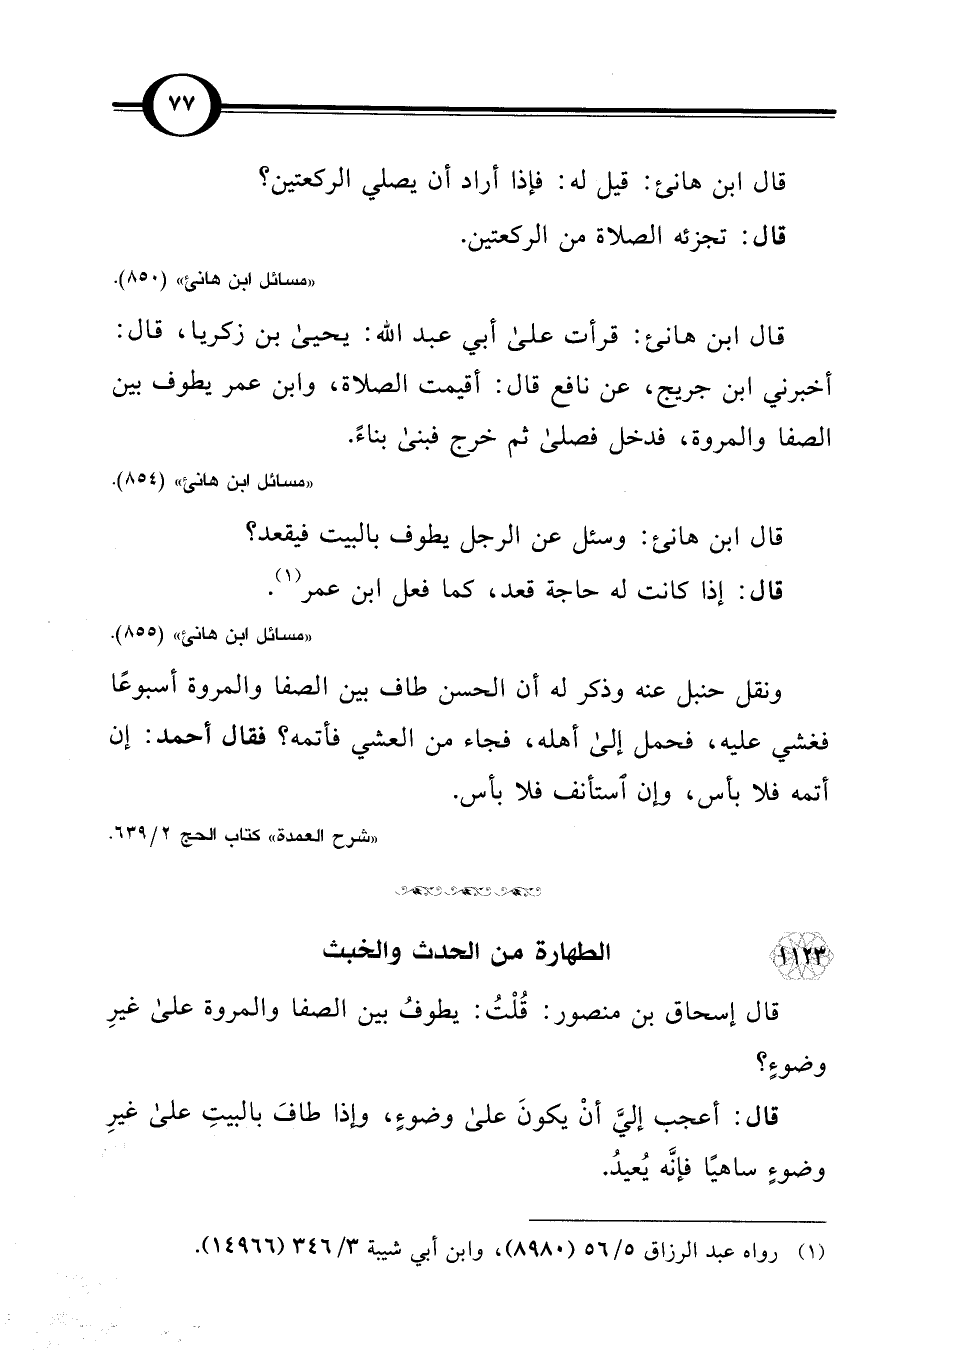 ٧٧
قال ابن هانئ: قيل له: فإذا أراد أن يصلي الركعتين؟
قال: تجزئه الصلاة من الركعتين.
«مسائل ابن هانئ» (٨٥٠).
قال ابن هانئ: قرأت علىٰ أبي عبد الله: يحيىٰ بن زكريا، قال:
أخبرني ابن جريج، عن نافع قال: أقيمت الصلاة، وابن عمر يطوف بين
الصفا والمروة، فدخل فصلىٰ ثم خرج فبنىٰ بناءً.
«مسائل ابن هانئ» (٨٥٤).
قال ابن هانئ: وسئل عن الرجل يطوف بالبيت فيقعد؟
قال: إذا كانت له حاجة قعد، كما فعل ابن عمر(١).
«مسائل ابن هانئ» (٨٥٥).
ونقل حنبل عنه وذكر له أن الحسن طاف بين الصفا والمروة أسبوعًا
فغشي عليه، فحمل إلىٰ أهله، فجاء من العشي فأتمه؟ فقال أحمد: إن
أتمه فلا بأس، وإن ٱستأنف فلا بأس.
«شرح العمدة» كتاب الحج ٢/ ٦٣٩.
١١٢٣ الطهارة من الحدث والخبث
قال إسحاق بن منصور: قُلْتُ: يطوفُ بين الصفا والمروة علىٰ غيرِ
وضوءٍ؟
قال: أعجب إليَّ أنْ يكونَ علىٰ وضوءٍ، وإذا طافَ بالبيتِ علىٰ غيرِ
وضوءٍ ساهيًا فإنَّه يُعيدُ.
(١) رواه عبد الرزاق ٥/ ٥٦ (٨٩٨٠)، وابن أبي شيبة ٣/ ٣٤٦ (١٤٩٦٦).